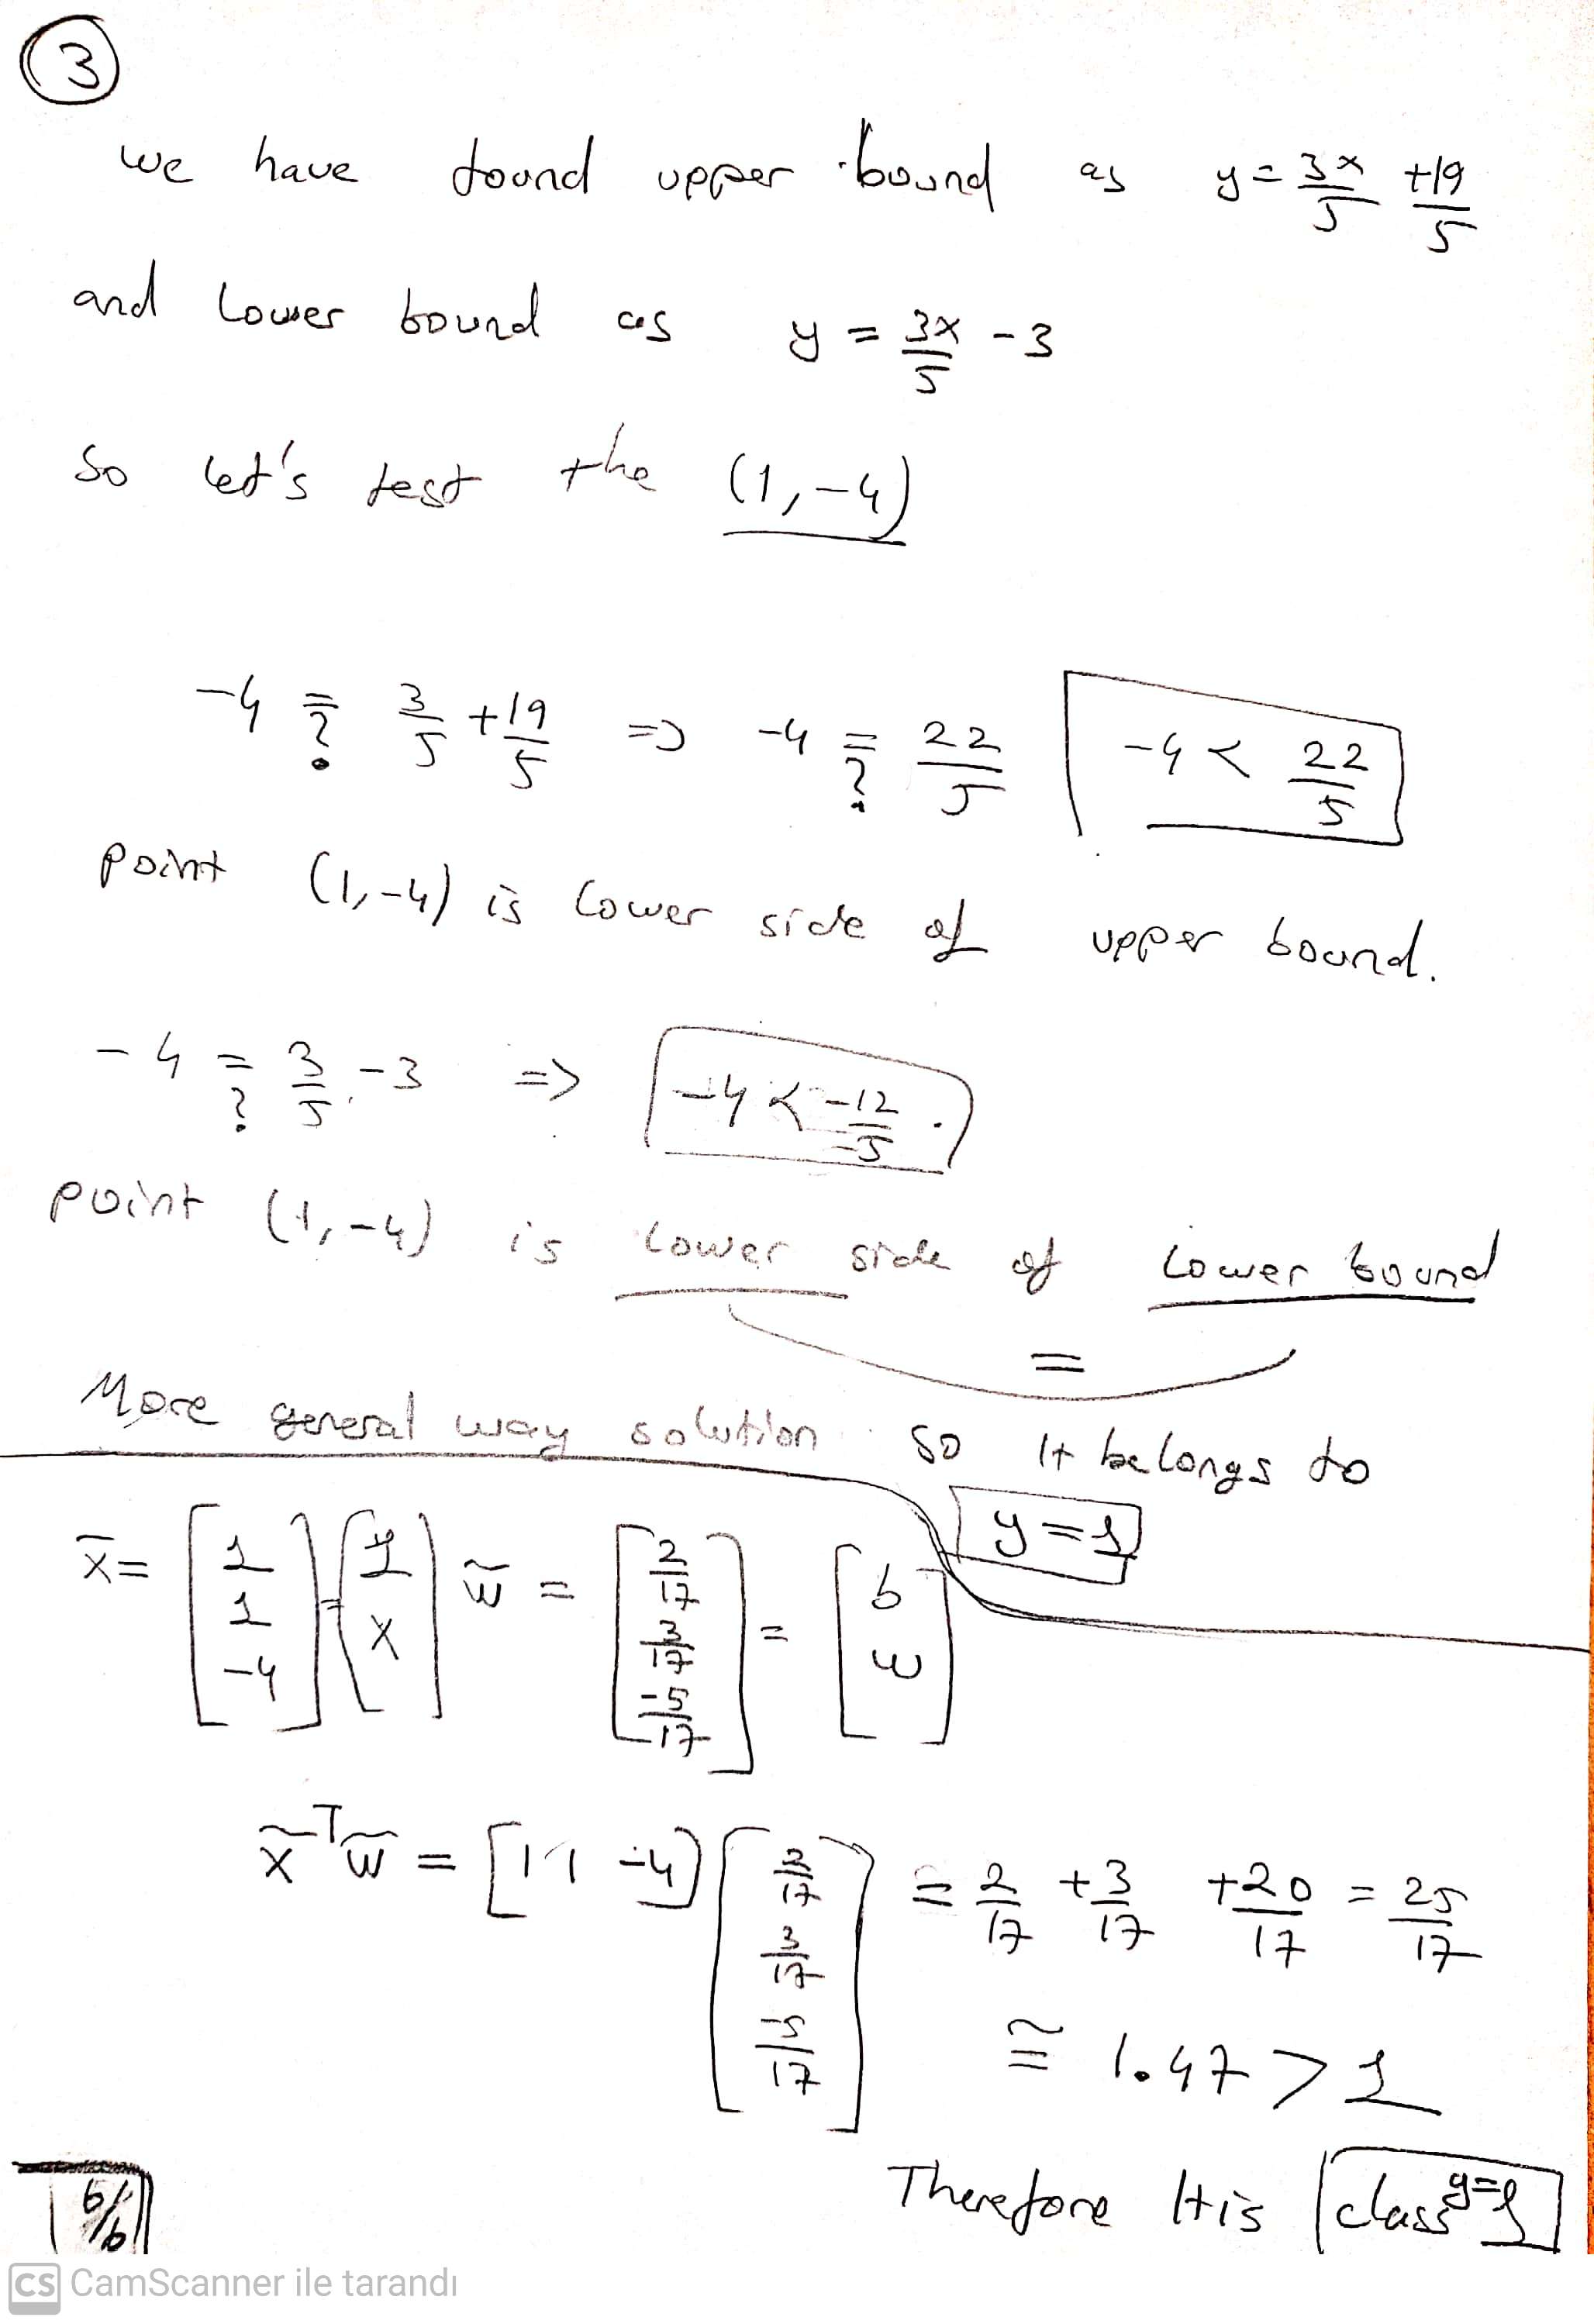 3
we have found upper bound as y = 3x/5 + 19/5
and lower bound as y = 3x/5 - 3
so let's test the (1,-4)
-4 =? 3/5 + 19/5 => -4 =? 22/5 -4 < 22/5
point (1,-4) is lower side of upper bound.
-4 =? 3/5 - 3 => -4 < -12/5
point (1,-4) is lower side of lower bound
=
More general way solution
so It belongs to
y=1
x̄ = [1 1 -4] = [1 x] w̃ = [2/17 3/17 -5/17] = [b w]
x̃ᵀw̃ = [1 1 -4] [2/17 3/17 -5/17] = 2/17 + 3/17 + 20/17 = 25/17
≅ 1.47 > 1
Therefore It is class y=1
6/6
CS CamScanner ile tarandı